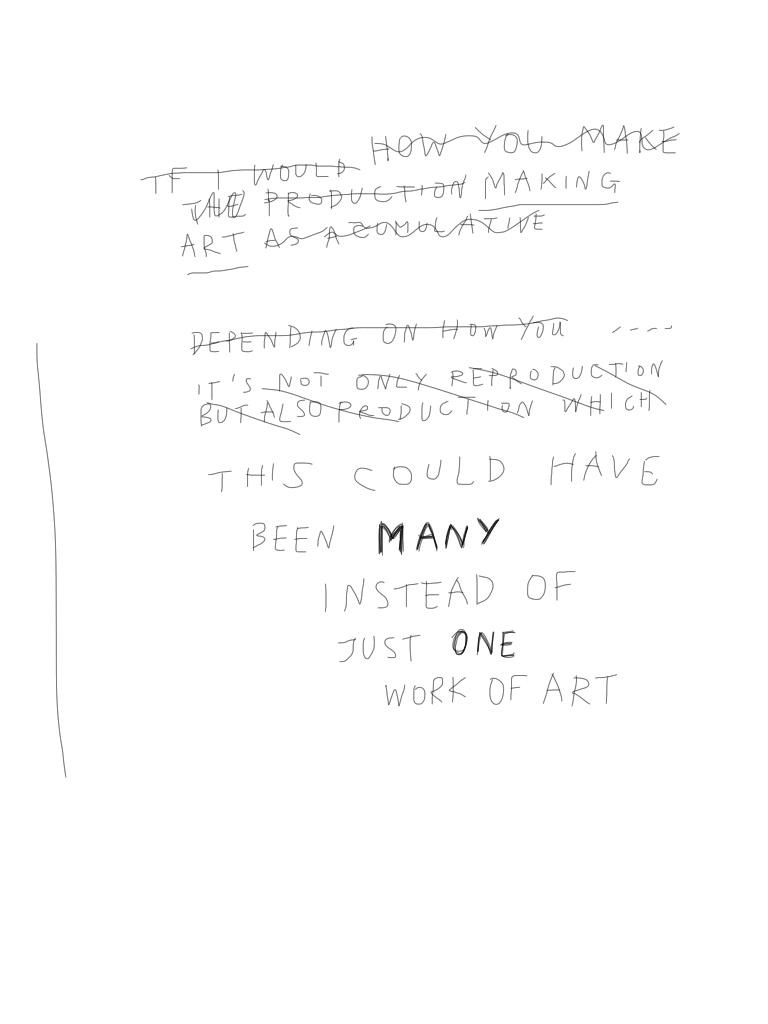 HOW YOU MAKE
IF I WOULD
THE PRODUCTION MAKING
ART AS A COMULATIVE
DEPENDING ON HOW YOU ----
IT'S NOT ONLY REPRODUCTION
BUT ALSO PRODUCTION WHICH
THIS COULD HAVE
BEEN MANY
INSTEAD OF
JUST ONE
WORK OF ART